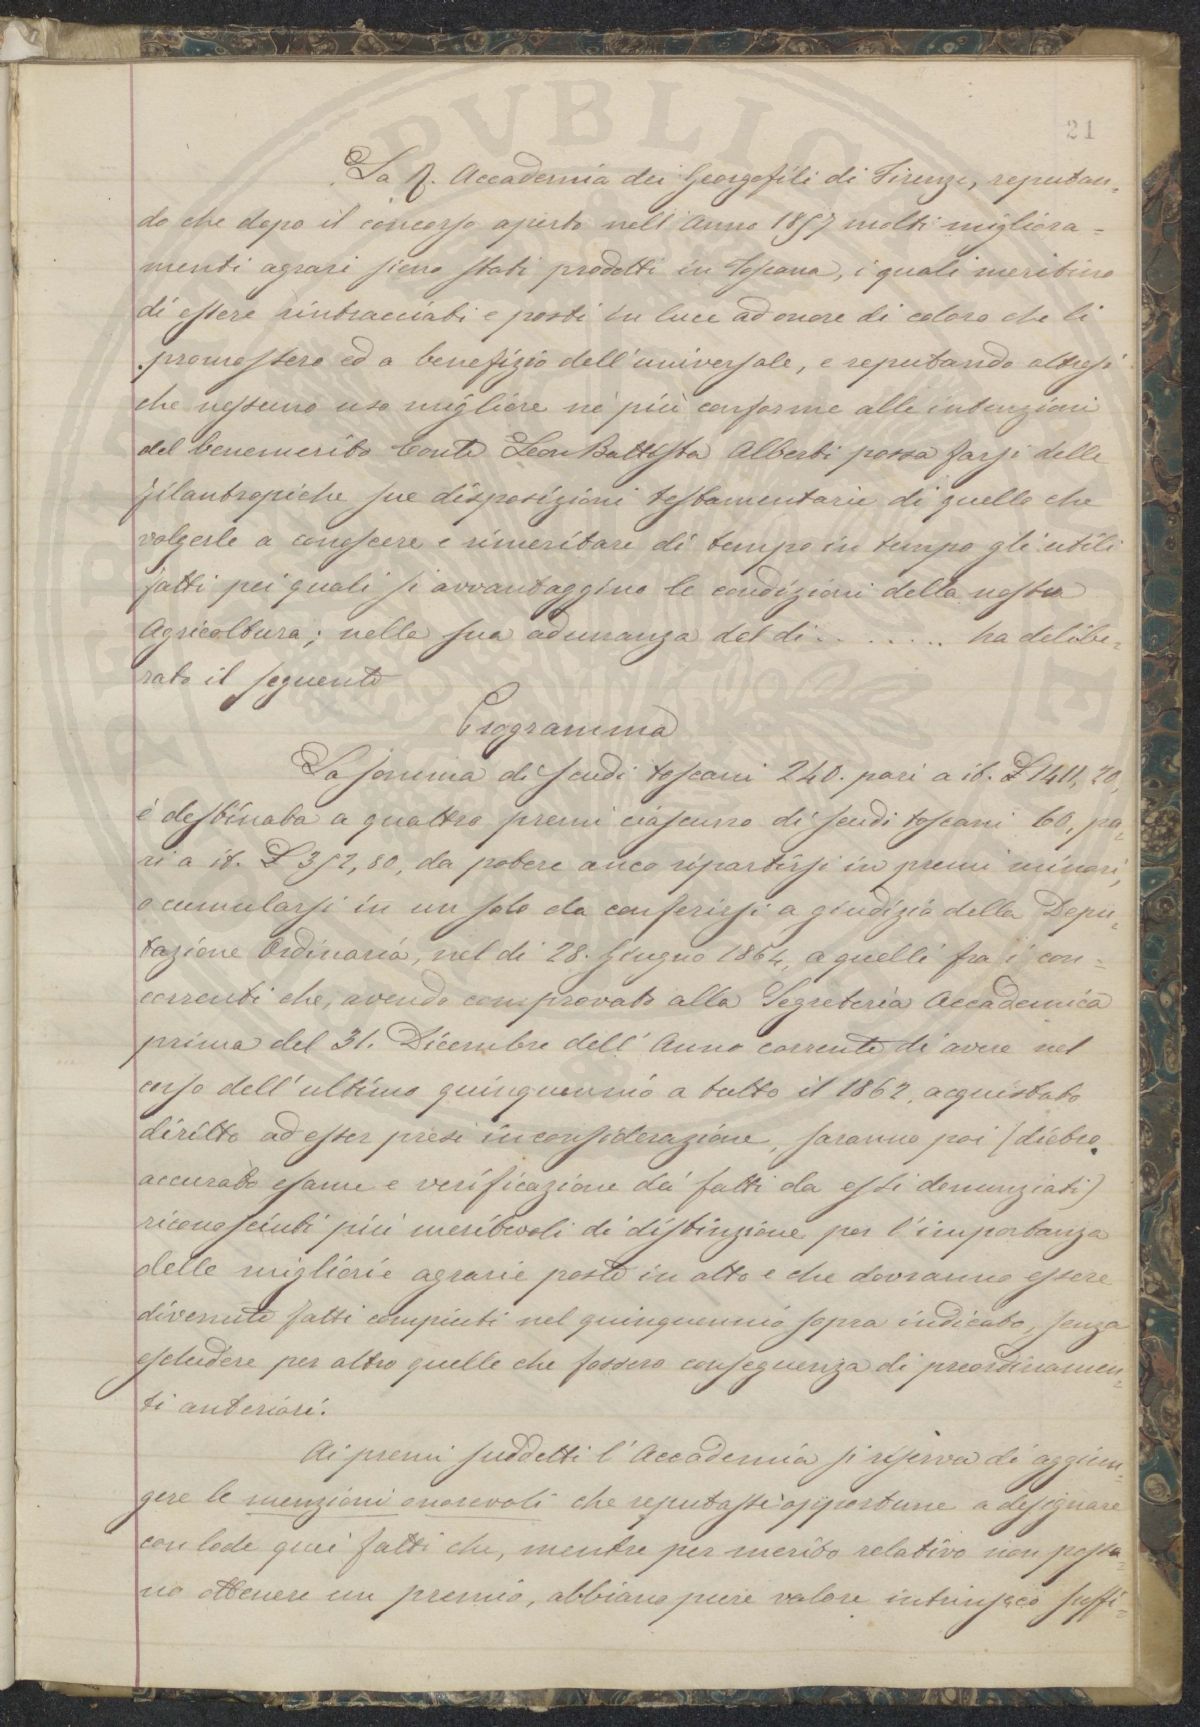 21
La R. Accademia dei Georgofili di Firenze, reputan„
do che dopo il concorso aperto nell' Anno 1857 molti migliora=
menti agrari sieno stati prodotti in Toscana, i quali meritino
di essere rintracciati e posti in luce ad onore di coloro che li
promossero ed a benefizio dell'universale, e reputando altresì
che nessuno uso migliore nè più conforme alle intenzioni
del benemerito Conte Leon Battista Alberti possa farsi delle
filantropiche sue disposizioni testamentarie di quello che
volgerle a conoscere e rimeritare di tempo in tempo gli utili
fatti pei quali si avvantaggino le condizioni della nostra
Agricoltura; nella sua adunanza del di........ ha delibe„
rato il seguente
Programma
La somma di scudi toscani 240. pari a it. £ 1411,20,
è destinata a quattro premi ciascuno di scudi toscani 60, pa„
ri a it. £ 352,80, da potere anco ripartirsi in premi minori,
o cumularsi in un solo da conferirsi a giudizio della Depu„
tazione Ordinaria, nel di 28. Giugno 1864, a quelli fra i con=
correnti che, avendo comprovato alla Segreteria Accademica
prima del 31. Dicembre dell' Anno corrente di avere nel
corso dell'ultimo quinquennio a tutto il 1862, acquistato
diritto ad esser presi in considerazione, saranno poi (dietro
accurato esame e verificazione dei fatti da essi denunziati)
riconosciuti più meritevoli di distinzione per l'importanza
delle migliorie agrarie poste in atto e che dovranno essere
divenute fatti compiuti nel quinquennio sopra indicato, senza
escludere per altro quelle che fossero conseguenza di preordinamen„
ti anteriori.
Ai premi suddetti l'Accademia si riserva di aggiun„
gere le menzioni onorevoli che reputasse opportune a designare
con lode quei fatti che, mentre per merito relativo non possa„
no ottenere un premio, abbiano pure valore intrinseco suffi„